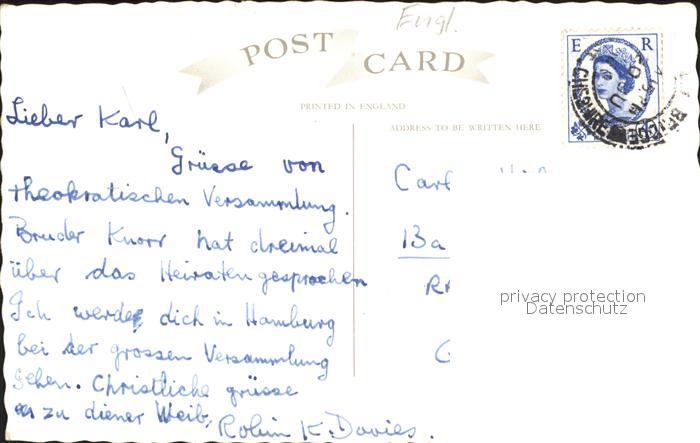 Engl.
POST CARD
PRINTED IN ENGLAND
ADDRESS TO BE WRITTEN HERE
E R
Lieber Karl,
Grüsse von
theokratischen Versammlung.
Bruder Knorr hat dreimal
über das Heiraten gesprochen
Ich werde dich in Hamburg
bei der grossen Versammlung
sehen. Christliche grüsse
zu diener Weib,
Robin K. Davies.
Carl
13a
privacy protection
Datenschutz